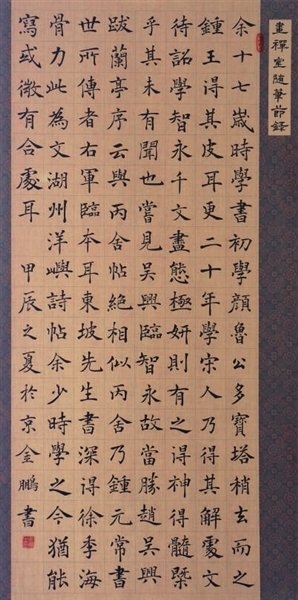 畫禪室隨筆節錄
余十七歲時學書初學顏魯公多寶塔稍去而之
鍾王得其皮耳更二十年學宋人乃得其解處文
待詔學智永千文盡態極妍則有之得神得髓槩
乎其未有聞也嘗見吳興臨智永故當勝趙吳興
跋蘭亭序云與丙舍帖絕相似丙舍乃鍾元常書
世所傳者右軍臨本耳東坡先生書深得徐季海
骨力此為文湖州洋嶼詩帖余少時學之今猶能
寫或微有合處耳 甲辰之夏於京金鵬書